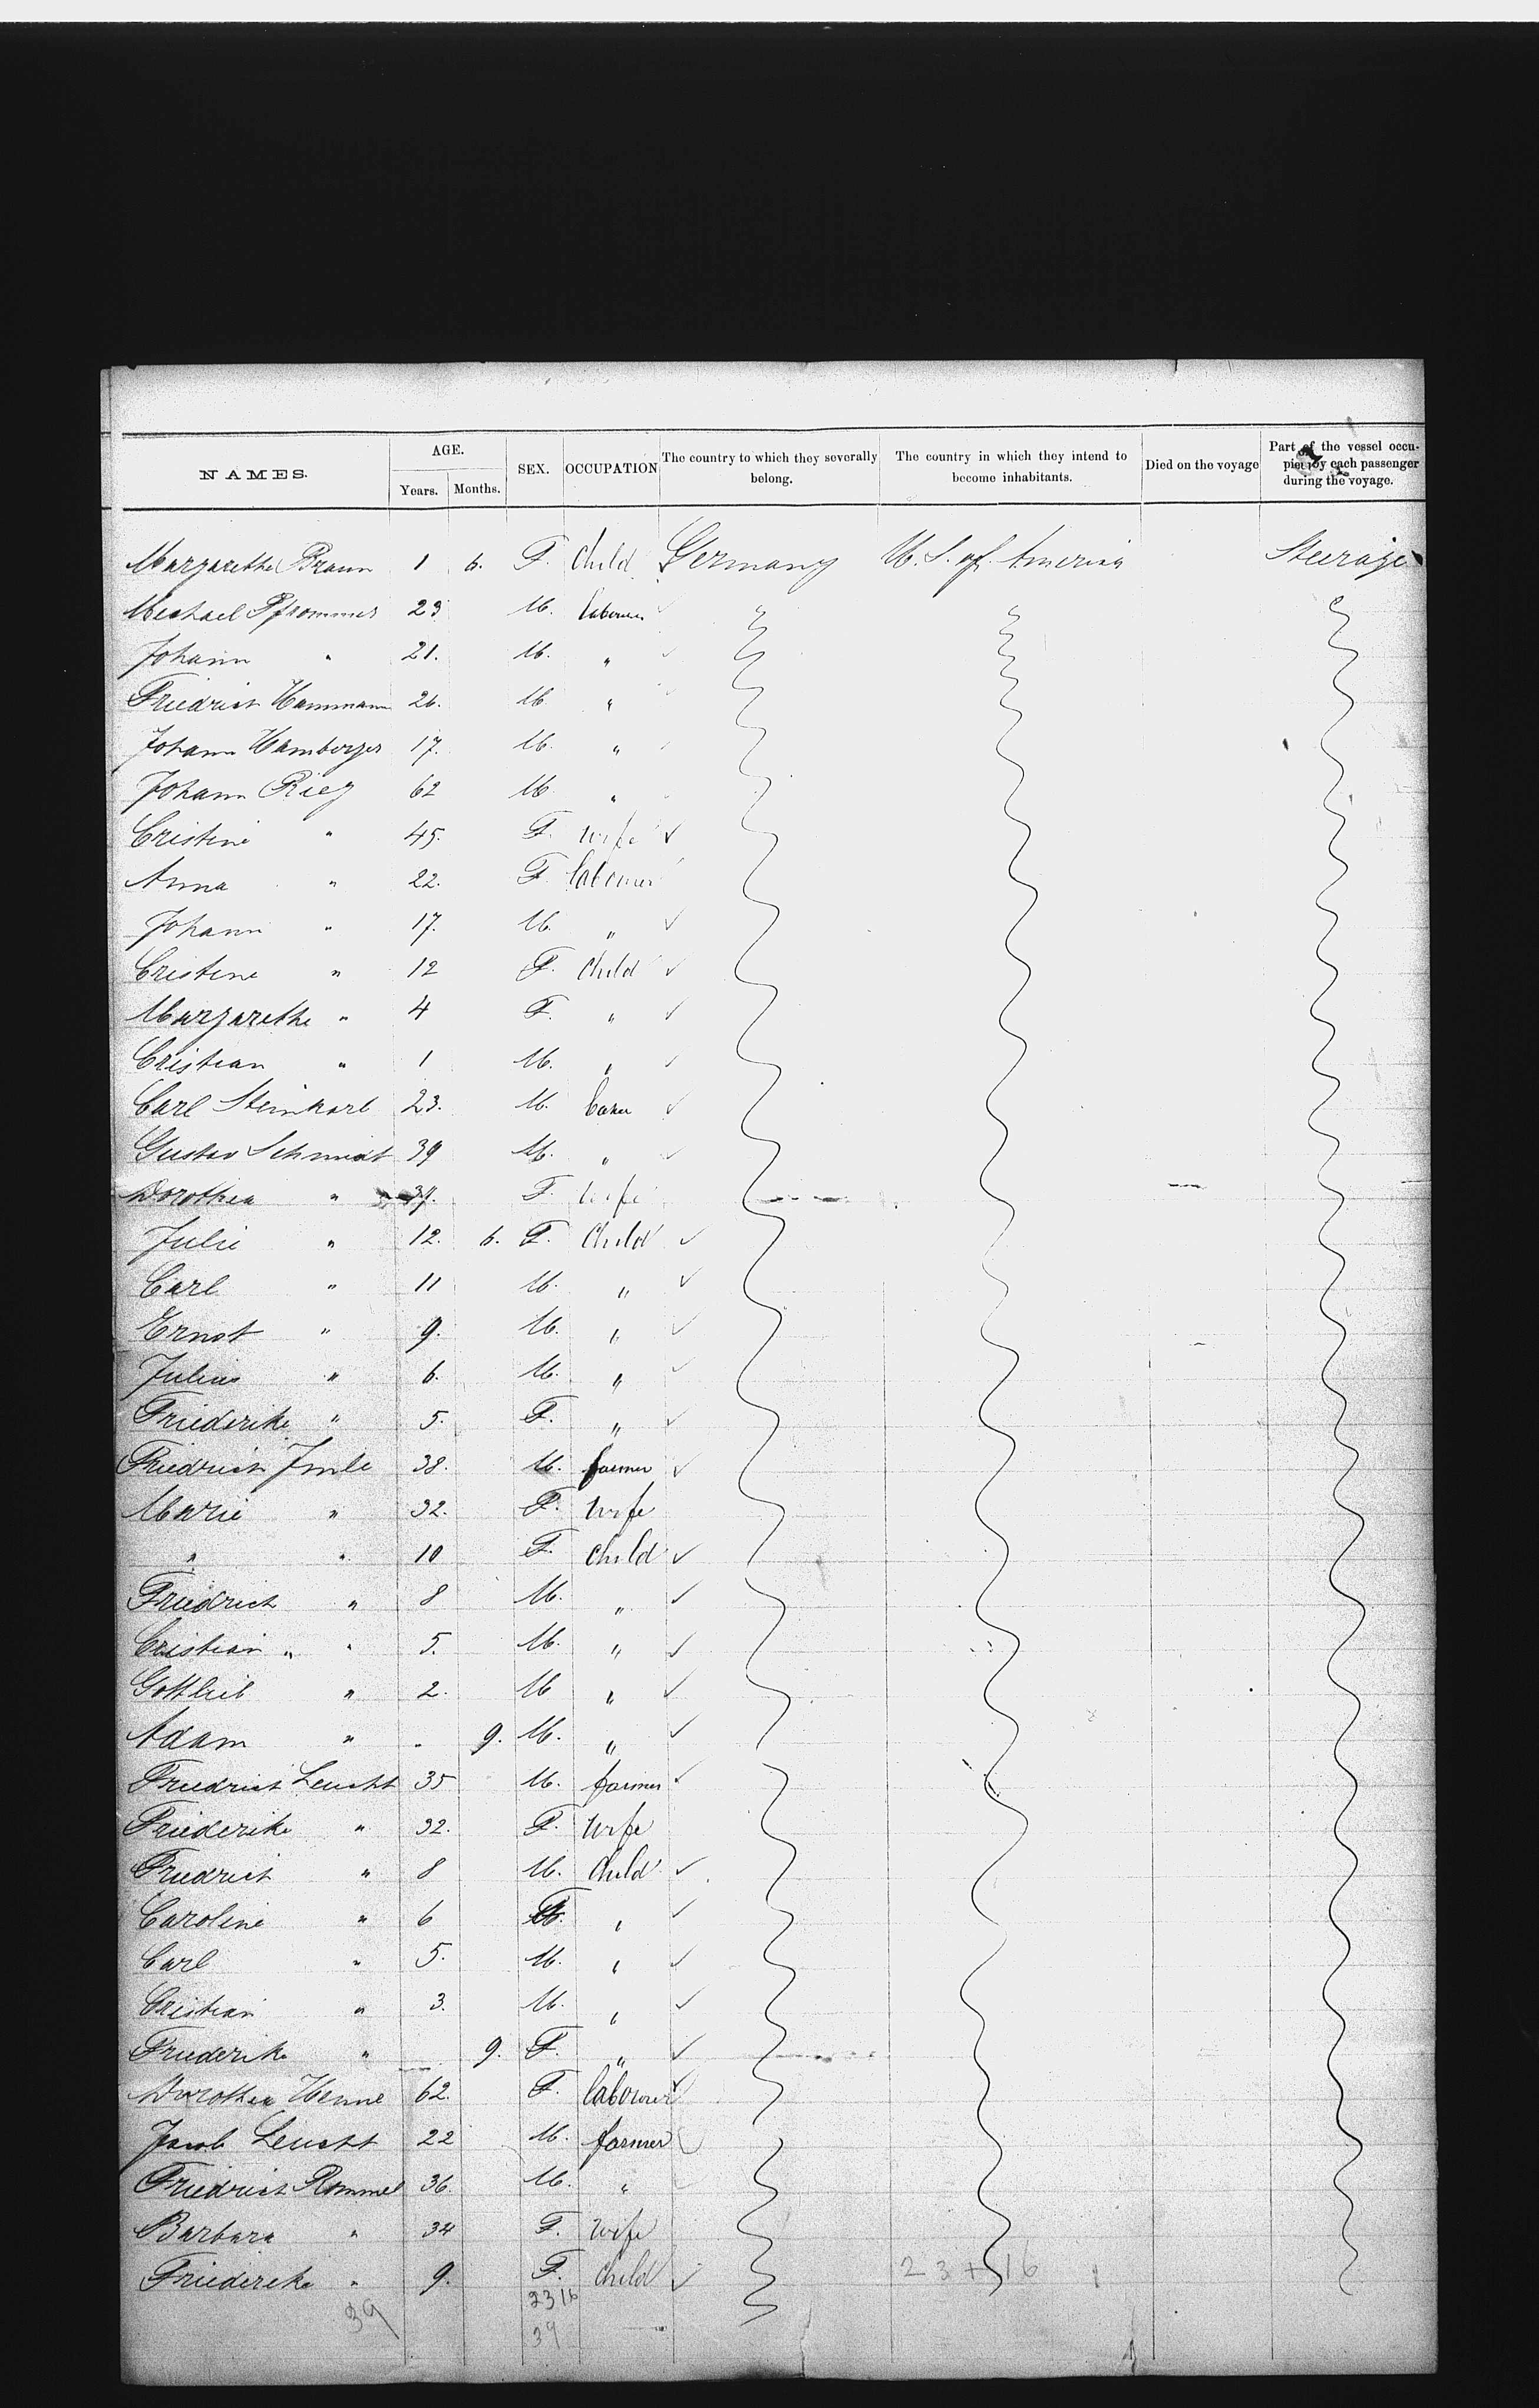 NAMES. AGE. Years. Months. SEX. OCCUPATION The country to which they severally belong. The country in which they intend to become inhabitants. Died on the voyage Part of the vessel occupied by each passenger during the voyage.
Margarethe Braun 1 6. F. Child Germany U. S. of America Steerage
Michael Pfrommer 23 M. labourer
Johann " 21. M. "
Friedrich Hammann 26. M "
Johann Hamberger 17. M. "
Johann Rieg 62 M "
Cristine " 45. F. wife
Anna " 22. F. labourer
Johann " 17. M. "
Cristine " 12 F. Child
Margarethe " 4 F. "
Cristian " 1 M. "
Carl 23. M.
Gustav Schmidt 39 M. "
Dorothea " 37. F. wife
Julie " 12. 6. F. Child
Carl " 11 M. "
Ernst " 9. M. "
Julius " 6. M. "
Friederike " 5. F. "
Friedrich Imle 38. M. farmer
Marie " 32. F. wife
" " 10 F. child
Friedrich " 8 M. "
Cristian " " 5. M. "
Gottlieb " 2. M "
Adam " . 9. M. "
Friedrich Leucht 35 M. farmer
Friederike " 32. F. wife
Friedrich " 8 M. Child
Caroline " 6 F. "
Carl " 5. M. "
Cristian " 3. M. "
Friederike " 9. F. "
Dorothea Henne 62. F. labourer
Jacob Leucht 22 M. farmer
Friedrich Rommel 36. M. "
Barbara " 34 F. wife
Friedereke " 9. F. Child 23 + 16
39 23 16
39